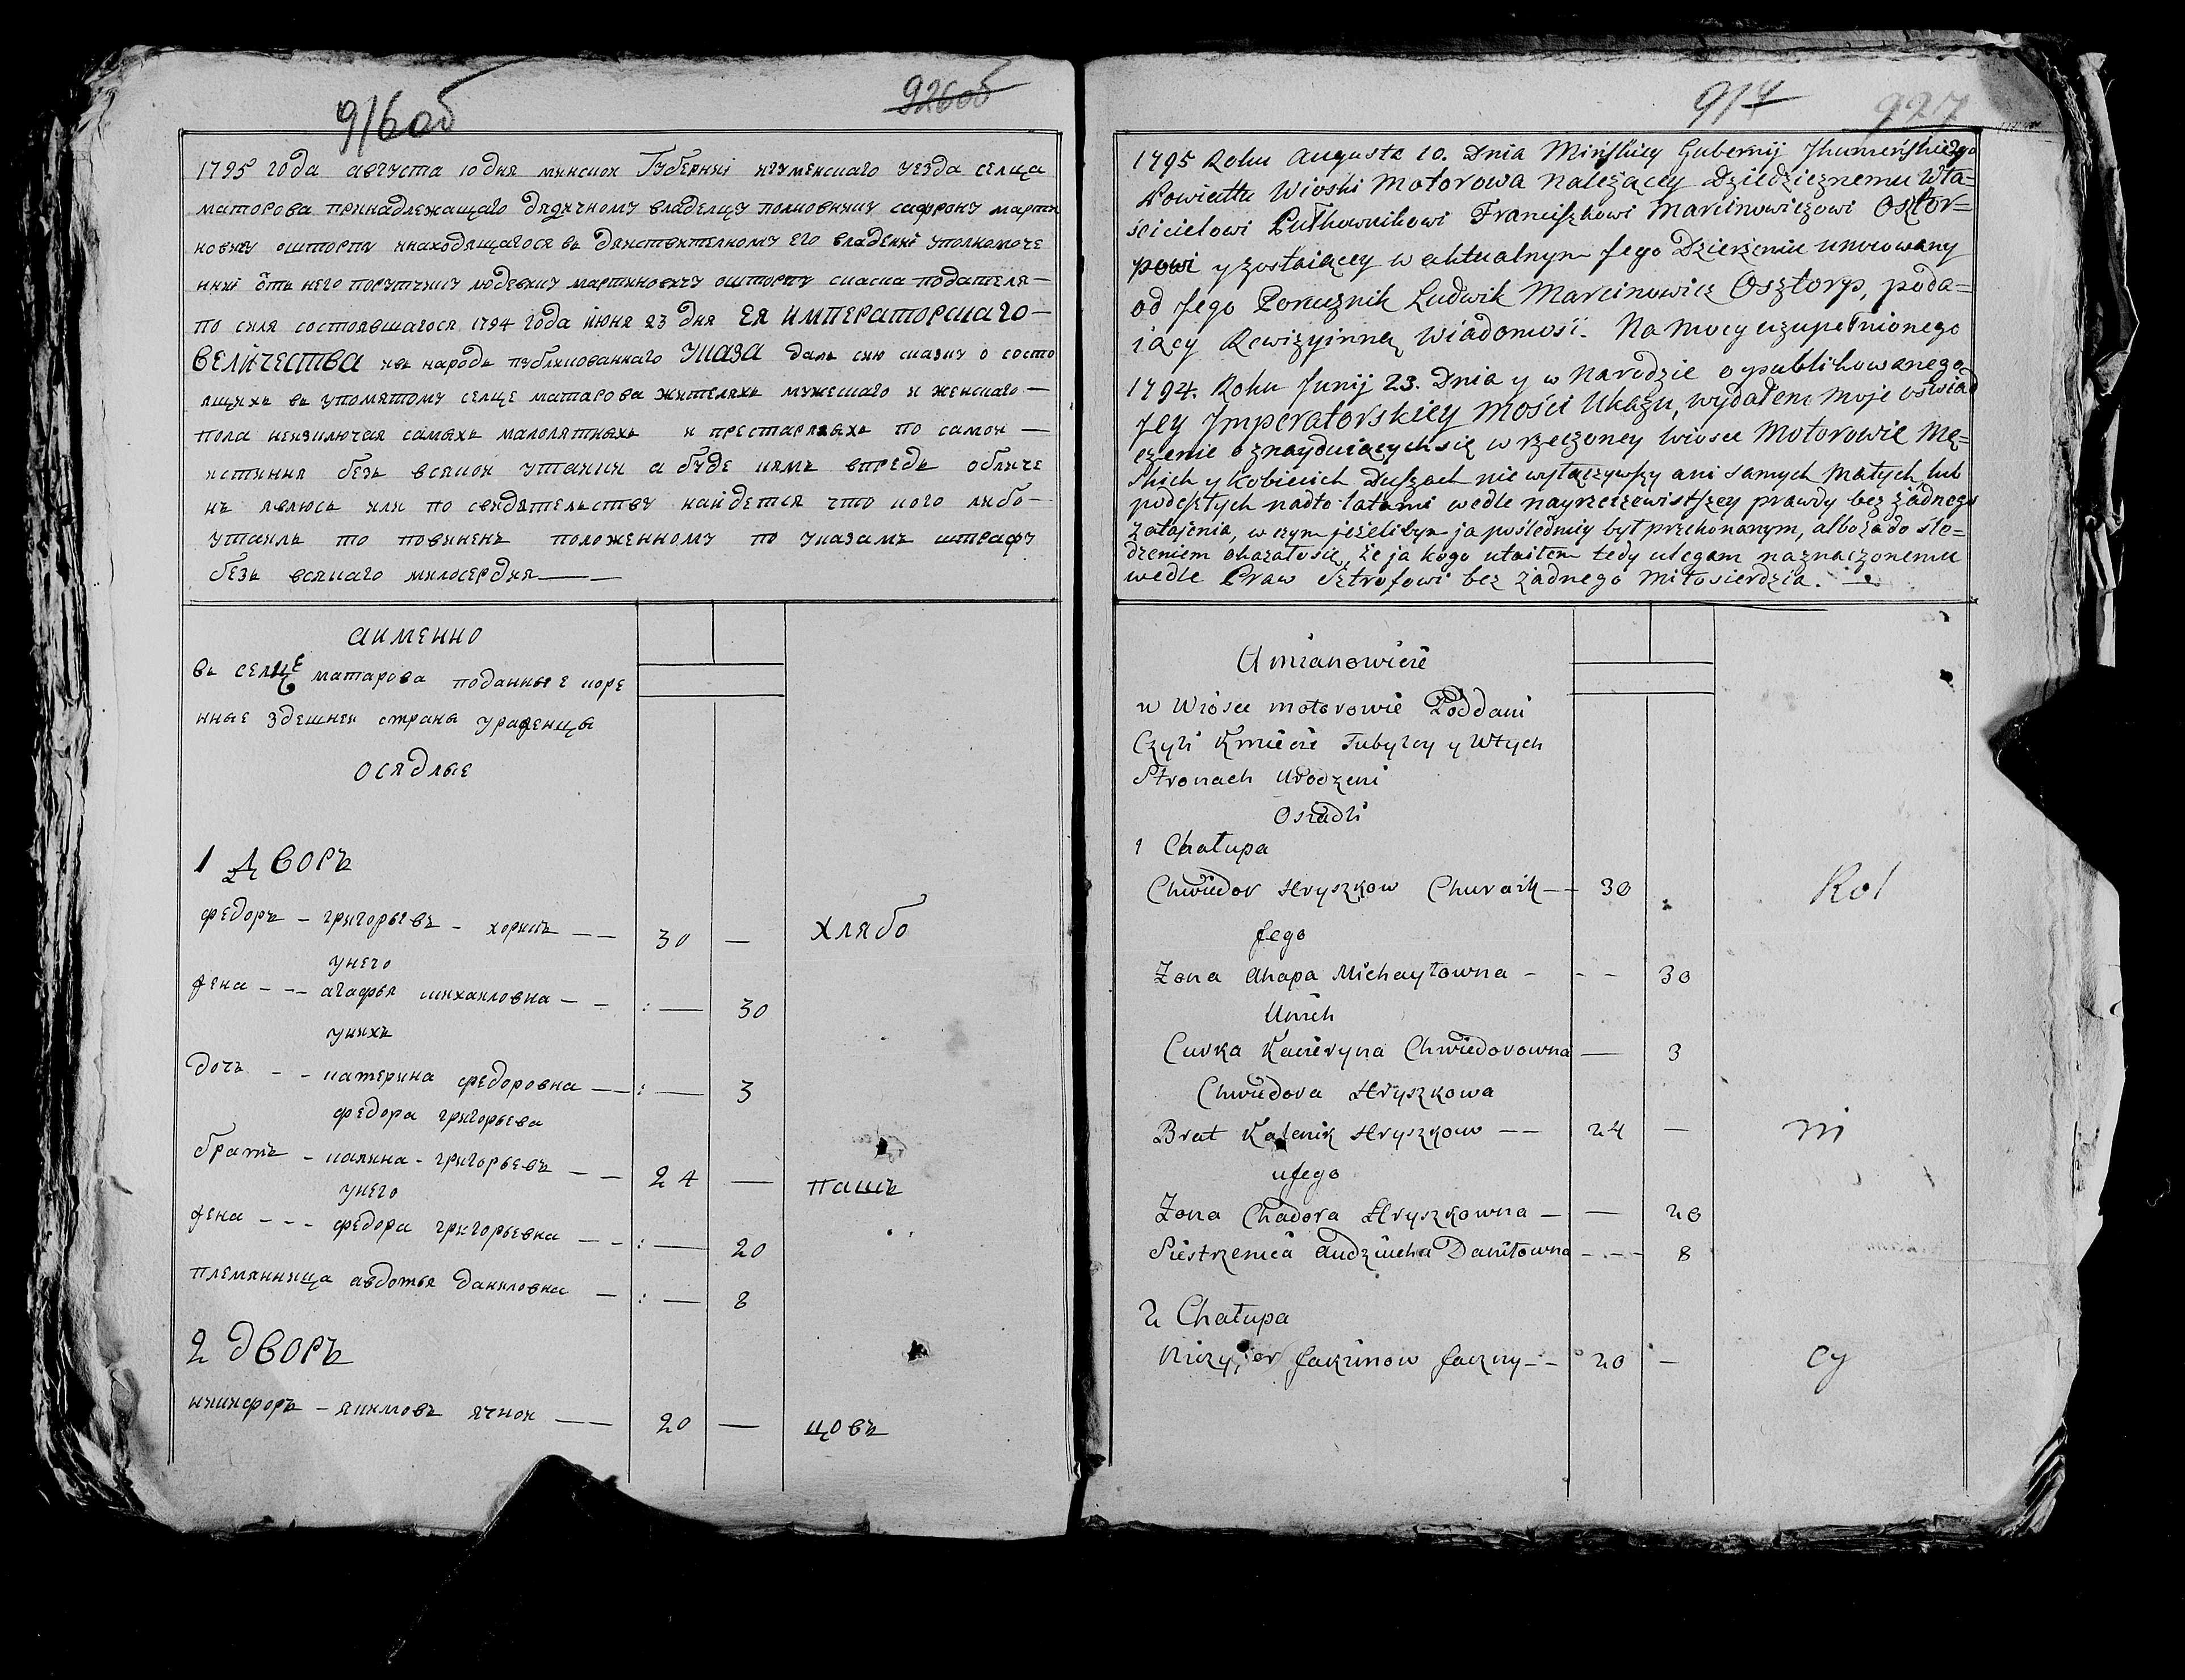 916об
926об
1795 года августа 10 дня минской Губерниі игуменскаго уезда селца
маторова принадлежащаго дядичному владелцу полковнику сафрону марти
новичу ошторпу инаходящагося въ дяиствителному его владениі уполномоче
нниі ѿтъ него порутчикъ людвикъ мартиновичъ ошторпъ скаска подателя —
по силя состоявшагося 1794 года июня 23 дня ЕЯ ИМПЕРАТОРСКАГО —
ВЕЛИЧЕСТВА ивъ народъ публикованнаго УКАЗА далъ сию сказку о состо
ящихъ въ упомятому селце матарова жителяхъ мужескаго и женскаго —
пола неизключая самыхъ малолятныхъ и престарляыхъ по самой —
истиння безъ всякой утаики а буде кямъ впредъ обличе
нъ явлюсь или по свядятельству найдется что кого либо —
утаилъ то повиненъ положенному по указамъ штрафу
безъ всякаго милосердия ——
аименно
въ селце матарова поданные коре
нные здешней страны уроженцы
осядлые
1 дворъ
федоръ — григорьевъ — хорикъ — — 30 — хлябо
унего
жена - - - агафья михаиловна — - : — 30
унихъ
дочъ - - катерина федоровна — : — 3
федора григорьева
братъ — калина - григорьевъ — — 24 — пашъ
унего
жена - - - федора григорьевна — — : — 20
племянница авдотья даниловна — : — 8
2 дворъ
никифоръ — якимовъ ячной — — 20 — цовъ
917
927
1795 Roku Augusta 10. Dnia Mińskiey Gubernij Jhumeńskiego
Powiettu Wioski Motorowa Należącey Dziedzicznemu Wła=
ścicielowi Pułkownikowi Franciszkowi Marcinowiczowi Osztor=
powi y zostaiącey w aktualnym Jego Dzierżeniu umocowany
od Jego Porucznik Ludwik Marcinowicz Osztorp, poda=
iący Rewizyinną Wiadomość. Na Mocy uzupełnionego
1794. Roku Junij 23. Dnia y w Narodzie opublikowanego
Jey Jmperatorskiey Mości Ukazu, wydałem Moje oświad
czenie o znayduiących się w rzeczoney Wiosce Motorowie Mę=
skich y Kobiecich Duszach nie wyłączywszy ani samych Małych, lub
podeszłych nadto latami wedle nayrzeczewistszey prawdy bez żadnego
Zatajenia, w czym jeżelibym ja pośledniey był przekonanym, albo za do śle=
dzeniem okazałosię, że ja kogo utaiłem tedy ulegam naznaczonemu
wedle Praw Sztrofowi bez żadnego Miłosierdzia. —
A mianowicie
w Wiosce Motorowie Poddani
Czyli Kmiecie Tubylcy y Wtych
Stronach Urodzeni
Osiadli
1 Chałupa
Chwiedor Hryszkow Churaik — 30 Rol
Jego
Zona Ahapa Michayłowna - - - 30
Unich
Curka Kacieryna Chwiedorowna — 3
Chwiedora Hryszkowa
Brat Kalenik Hryszkow — — 24 — ni
uJego
Zona Chadora Hryszkowna — — 20
Siestrzenica Audziucha Daniłowna - - - 8
2 Chałupa
Jakimow Jaczny - - 20 — cy